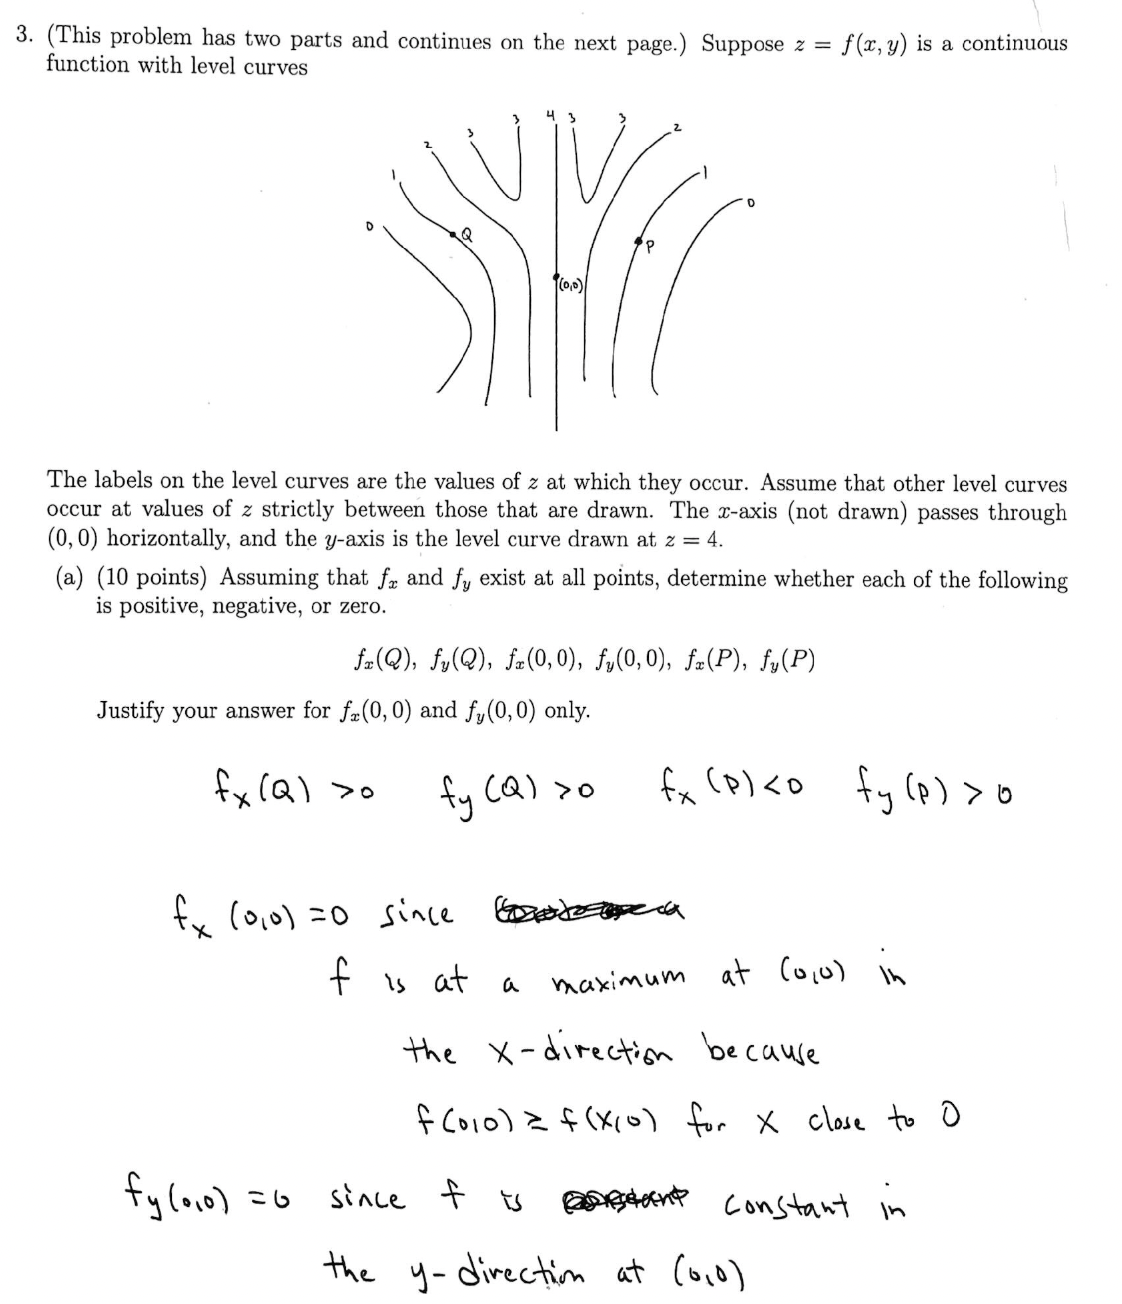 3. (This problem has two parts and continues on the next page.) Suppose z = f(x, y) is a continuous
function with level curves
3 4 3 3
2 3 2
1 1
0 0
Q P
(0,0)
The labels on the level curves are the values of z at which they occur. Assume that other level curves
occur at values of z strictly between those that are drawn. The x-axis (not drawn) passes through
(0, 0) horizontally, and the y-axis is the level curve drawn at z = 4.
(a) (10 points) Assuming that fₓ and f_y exist at all points, determine whether each of the following
is positive, negative, or zero.
fₓ(Q), f_y(Q), fₓ(0, 0), f_y(0, 0), fₓ(P), f_y(P)
Justify your answer for fₓ(0, 0) and f_y(0, 0) only.
fₓ(Q) >0 f_y(Q) >0 fₓ(P)<0 f_y(P) > 0
fₓ(0,0) =0 since
f is at a maximum at (0,0) in
the x-direction because
f(0,0) ≥ f(x,0) for x close to 0
f_y(0,0) =0 since f is constant in
the y-direction at (0,0)